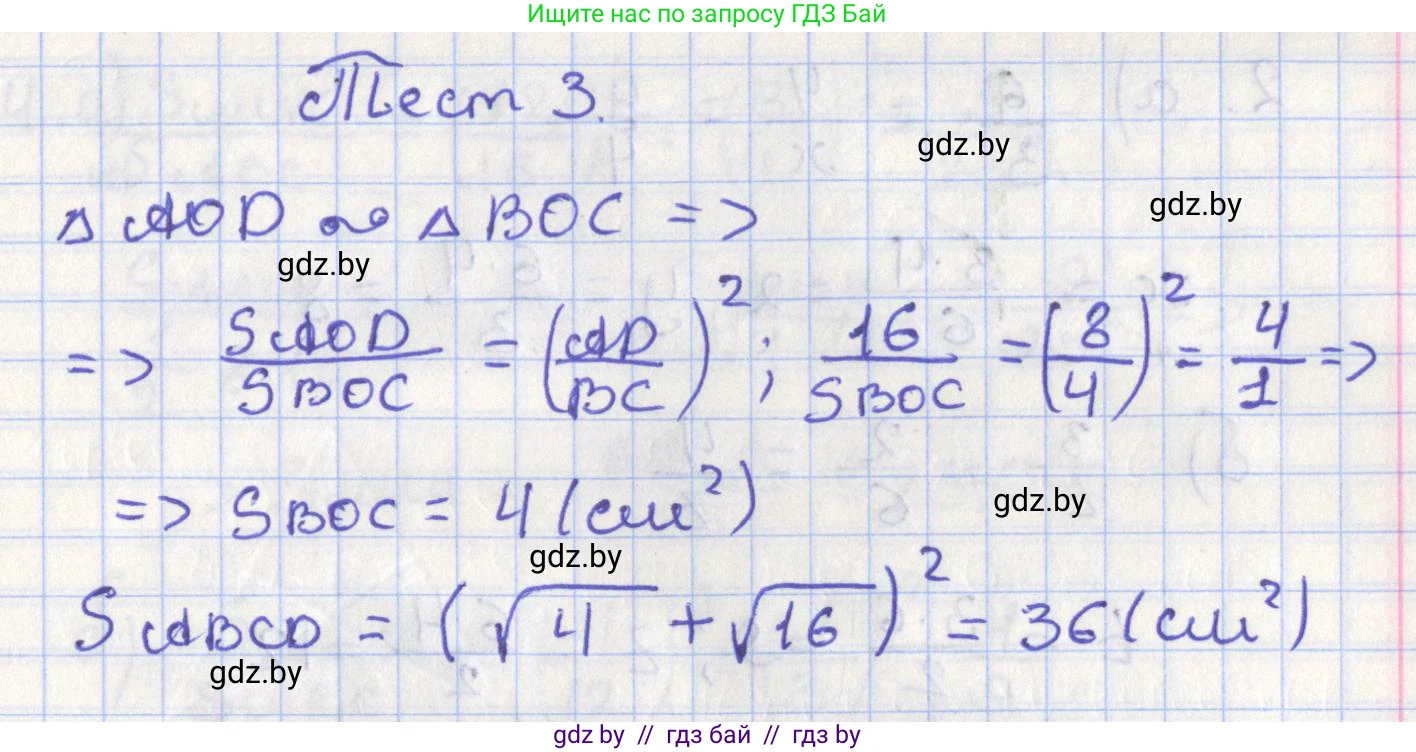 Ищите нас по запросу ГДЗ Бай
Тест 3.
gdz.by
△ AOD ∾ △ BOC =>
gdz.by
gdz.by
=> SAOD/SBOC = (AD/BC)²; 16/SBOC = (8/4)² = 4/1 =>
=> SBOC = 4 (см²)
gdz.by
gdz.by
SABCD = (√4 + √16)² = 36 (см²)
gdz.by
gdz by // гдз бай // гдз by